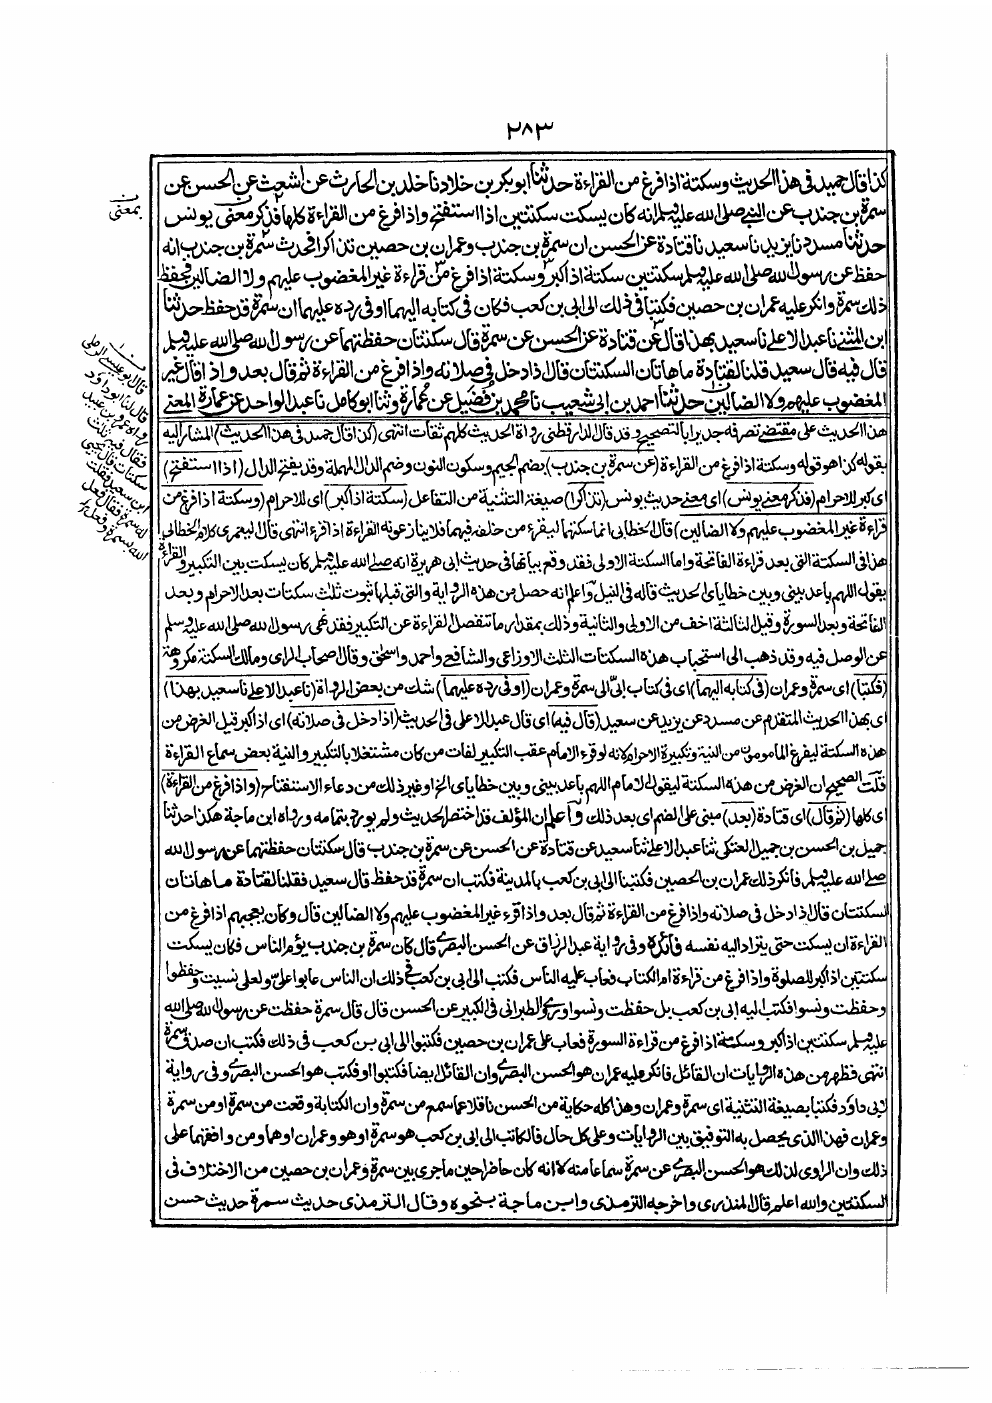 ٢٨٣
كذا قال حميد فى هذا الحديث وسكتة اذا فرغ من القراءة حدثنا ابو بكر بن خلاد نا خالد بن الحارث عن اشعث عن الحسن عن
سمرة بن جندب عن النبى صلى الله عليه وسلم انه كان يسكت سكتتين اذا استفتح واذا فرغ من القراءة كلها فذكر معنى يونس
حدثنا مسدد نا يزيد نا سعيد نا قتادة عن الحسن ان سمرة بن جندب وعمران بن حصين تذاكرا فحدث سمرة بن جندب انه
حفظ عن رسول الله صلى الله عليه وسلم سكتتين سكتة اذا كبر وسكتة اذا فرغ من قراءة غير المغضوب عليهم ولا الضالين فحفظ
ذلك سمرة وانكر عليه عمران بن حصين فكتبا فى ذلك الى ابى بن كعب فكان فى كتابه اليهما او فى رده عليهما ان سمرة قد حفظ حدثنا
ابن المثنى نا عبد الاعلى نا سعيد بهذا قال عن قتادة عن الحسن عن سمرة قال سكتتان حفظتهما عن رسول الله صلى الله عليه وسلم
قال فيه قال سعيد قلنا لقتادة ما هاتان السكتتان قال اذا دخل فى صلاته واذا فرغ من القراءة ثم قال بعد واذا قال غير
المغضوب عليهم ولا الضالين حدثنا احمد بن ابى شعيب نا محمد بن فضيل عن عمارة وثنا ابو كامل نا عبد الواحد عن عمارة المعنى
هذا الحديث على مقتضى تصرفه جدير بالتصحيح وقد قال الدارقطنى رواة الحديث كلهم ثقات انتهى (كذا قال حميد فى هذا الحديث) المشار اليه
بقوله كذا هو قوله وسكتة اذا فرغ من القراءة (عن سمرة بن جندب) بضم الجيم وسكون النون وضم الدال المهملة وقد يفتح الدال (اذا استفتح)
اى كبر للاحرام (فذكر معنى يونس) اى معنى حديث يونس (تذاكرا) صيغة التثنية من التفاعل (سكتة اذا كبر) اى للاحرام (وسكتة اذا فرغ من
قراءة غير المغضوب عليهم ولا الضالين) قال الخطابى انما سكتها ليقرء من خلفه فيهما فلا ينازعونه القراءة اذا قرء انتهى قال اليعمرى كلام الخطابى
هذا فى السكتة التى بعد قراءة الفاتحة واما السكتة الاولى فقد وقع بيانها فى حديث ابى هريرة انه صلى الله عليه وسلم كان يسكت بين التكبير والقراءة
يقول اللهم باعد بينى وبين خطاياى الحديث قاله فى النيل واعلم انه حصل من هذه الرواية والتى قبلها ثبوت ثلث سكتات بعد الاحرام وبعد
الفاتحة وبعد السورة وقيل الثالثة اخف من الاولى والثانية وذلك بمقدار ما تنفصل القراءة عن التكبير فقد نهى رسول الله صلى الله عليه وسلم
عن الوصل فيه وقد ذهب الى استحباب هذه السكتات الثلث الاوزاعى والشافعى واحمد واسحق وقال اصحاب الراى ومالك السكتة مكروهة
(فكتبا) اى سمرة وعمران (فى كتابه اليهما) اى فى كتاب ابىّ الى سمرة وعمران (او فى رده عليهما) شك من بعض الرواة (نا عبد الاعلى نا سعيد بهذا)
اى بهذا الحديث المتقدم عن مسدد عن يزيد عن سعيد (قال فيه) اى قال عبد الاعلى فى الحديث (اذا دخل فى صلاته) اى اذا كبر قيل الغرض من
هذه السكتة ليفرغ المامومون من النية وتكبيرة الاحرام لانه لو قرء الامام عقب التكبير لفات من كان مشتغلا بالتكبير والنية بعض سماع القراءة
قلت الصحيح ان الغرض من هذه السكتة ليقول الامام اللهم باعد بينى وبين خطاياى الخ او غير ذلك من دعاء الاستفتاح (واذا فرغ من القراءة)
اى كلها (ثم قال) اى قتادة (بعد) مبنى على الضم اى بعد ذلك واعلم ان المؤلف قد اختصر الحديث ولم يورد بتمامه ورواه ابن ماجة هكذا حدثنا
جميل بن الحسن بن جميل العتكى ثنا عبد الاعلى ثنا سعيد عن قتادة عن الحسن عن سمرة بن جندب قال سكتتان حفظتهما عن رسول الله
صلى الله عليه وسلم فانكر ذلك عمران بن الحصين فكتبنا الى ابى بن كعب بالمدينة فكتب ان سمرة قد حفظ قال سعيد فقلنا لقتادة ما هاتان
السكتتان قال اذا دخل فى صلاته واذا فرغ من القراءة ثم قال بعد واذا قرء غير المغضوب عليهم ولا الضالين قال وكان يعجبهم اذا فرغ من
القراءة ان يسكت حتى يتراد اليه نفسه فائدة وفى رواية عبد الرزاق عن الحسن البصرى قال كان سمرة بن جندب يؤم الناس فكان يسكت
سكتتين اذا كبر للصلوة واذا فرغ من قراءة ام الكتاب فعاب عليه الناس فكتب الى ابى بن كعب فى ذلك ان الناس عابوا علىّ ولعلى نسيت وحفظوا
وحفظت ونسوا فكتب اليه ابى بن كعب بل حفظت ونسوا وروى الطبرانى فى الكبير عن الحسن قال قال سمرة حفظت عن رسول الله صلى الله
عليه وسلم سكتتين اذا كبر وسكتة اذا فرغ من قراءة السورة فعاب على عمران بن حصين فكتبوا الى ابى بن كعب فى ذلك فكتب ان صدق سمرة
انتهى فظهر من هذه الروايات ان القائل فانكر عليه عمران هو الحسن البصرى وان القائل ايضا فكتبوا او فكتب هو الحسن البصرى وفى رواية
لابى داود فكتبا بصيغة التثنية اى سمرة وعمران وهذا كله حكاية من الحسن ناقلا عما سمع من سمرة وان الكتابة وقعت من سمرة او من سمرة
وعمران فهذا الذى يحصل به التوفيق بين الروايات وعلى كل حال فالكاتب الى ابى بن كعب هو سمرة او هو وعمران او هما ومن وافقهما على
ذلك وان الراوى لذلك هو الحسن البصرى عن سمرة سماعا منه لا انه كان حاضرا حين ما جرى بين سمرة وعمران بن حصين من الاختلاف فى
السكتتين والله اعلم قال المنذرى واخرجه الترمذى وابن ماجة بنحوه وقال الترمذى حديث سمرة حديث حسن
ن
بمعنى
قال ابو عيسى الرملى
قال لنا ابو داود
رواه عمرو بن عبيد
فقال فيه ثلث
سكتات قال يحيى
ابن سعيد فقلت
له سمرة فقال فعل
الله بسمرة وفعل